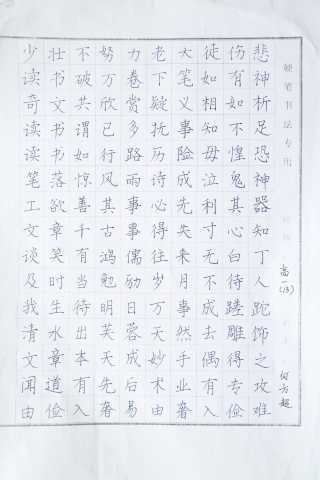 少壮不努力老大徒伤悲
读书破万卷下笔如有神
奇文共欣赏疑义相如析
读书谓已多抚事知不足
读书如行路历险毋惶恐
笔落惊风雨诗成泣鬼神
工欲善其事必先利其器
文章千古事得失寸心知
谈笑有鸿儒往来无白丁
及时当勉励岁月不待人
我生待明日万事成蹉跎
清水出芙蓉天然去雕饰
文章本天成妙手偶得之
闻道有先后术业有专攻
由俭入奢易由奢入俭难
硬笔书法专用
高一